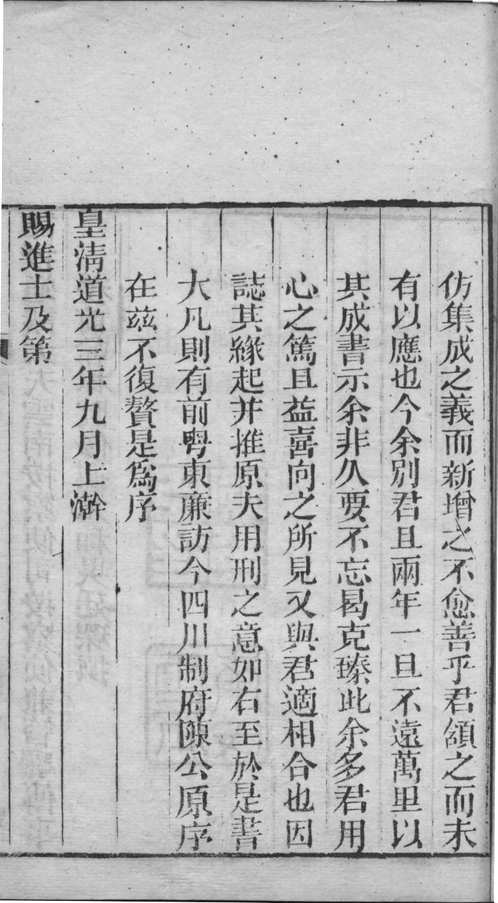 仿集成之義而新增之不愈善乎君頷之而未
有以應也今余別君且兩年一旦不遠萬里以
其成書示余非久要不忘曷克臻此余多君用
心之篤且益喜向之所見又與君適相合也因
誌其緣起并推原夫用刑之意如右至於是書
大凡則有前粵東廉訪今四川制府陳公原序
在茲不復贅是爲序
皇清道光三年九月上澣
賜進士及第